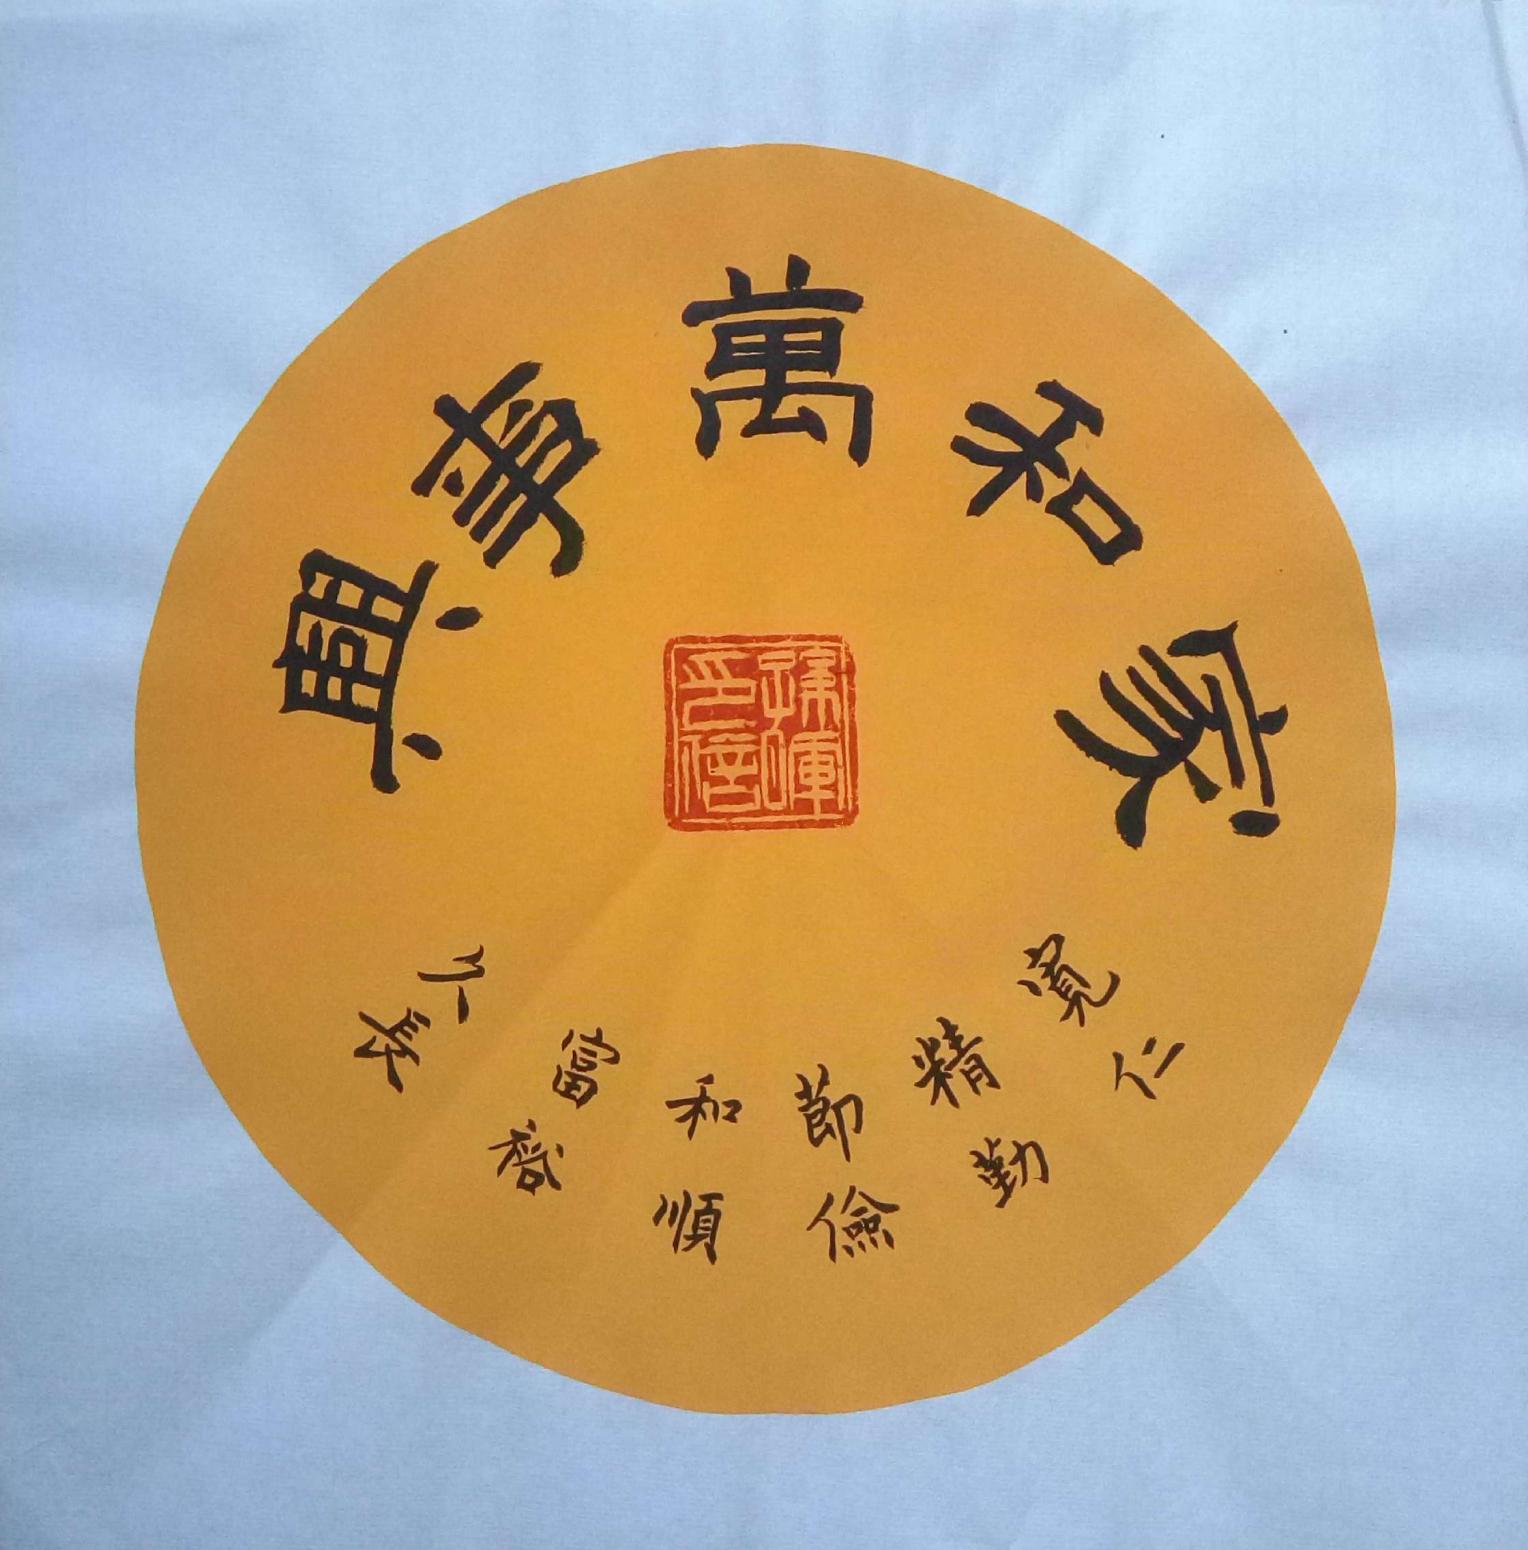 家和萬事興
寬仁
精勤
節儉
和順
富裕
久長
孫暉
印信